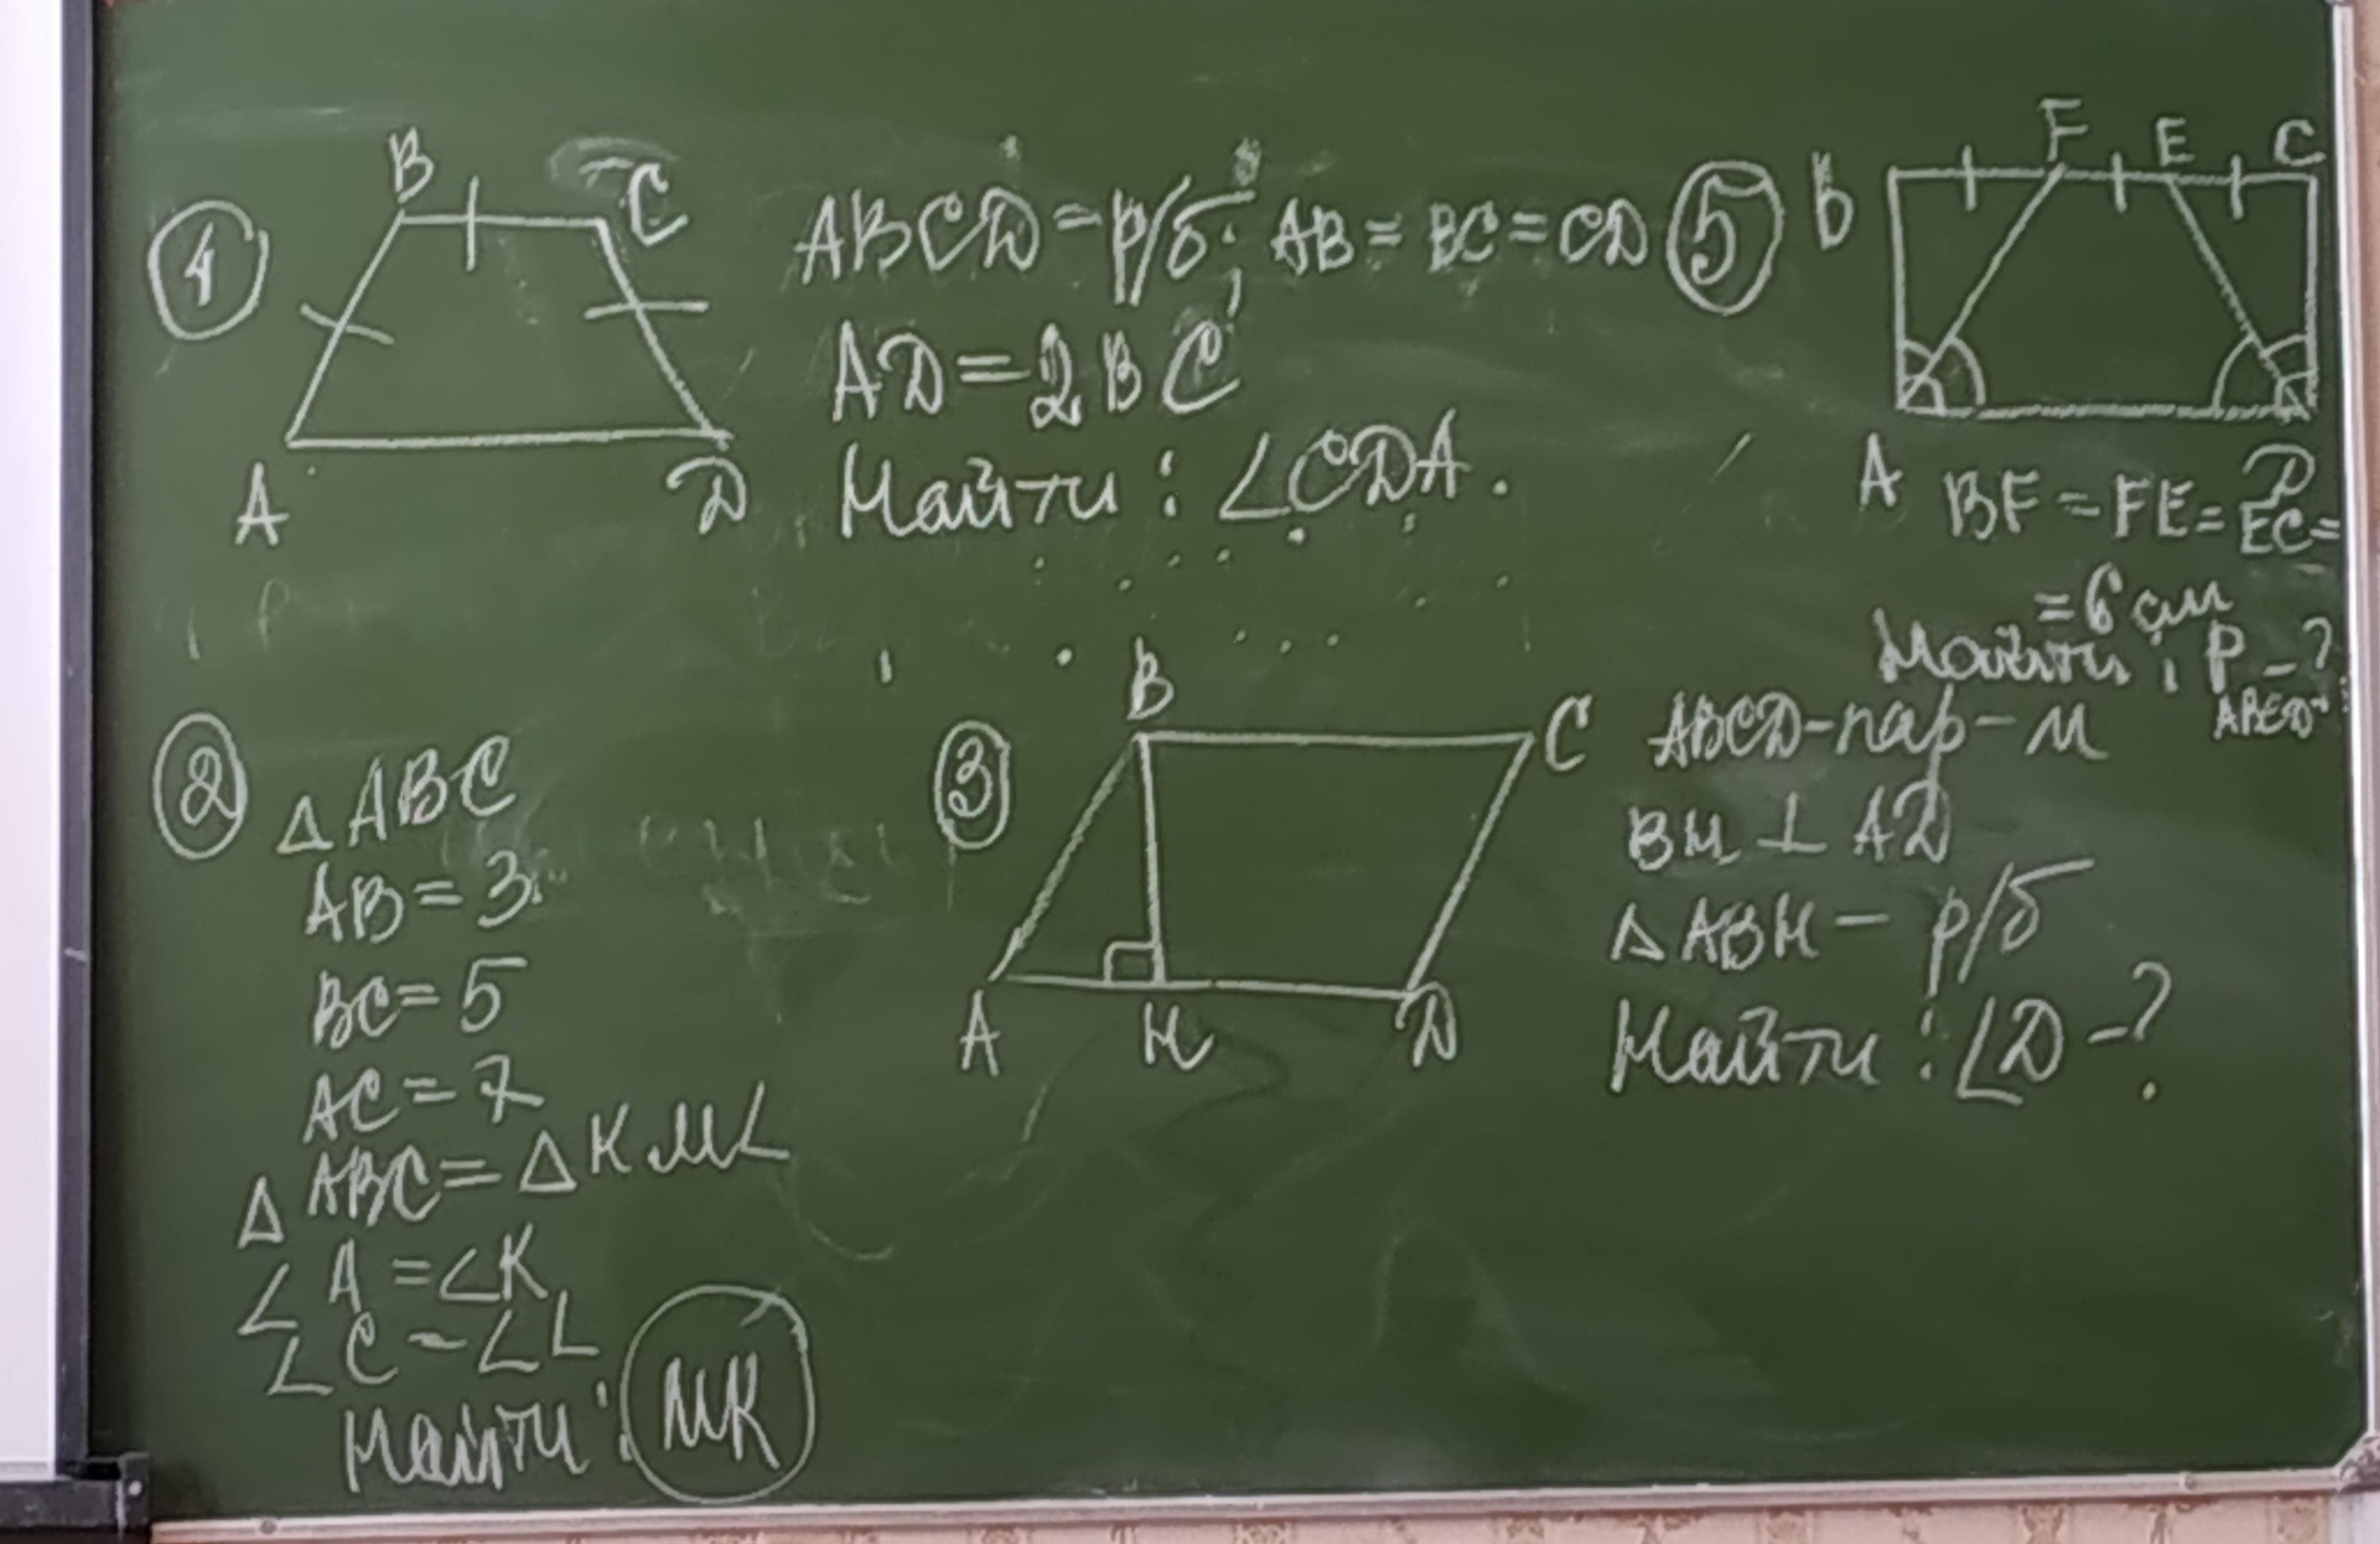 1
B
C
A
D
ABCD = р/б; AB = BC = CD
AD = 2BC
Найти: ∠CDA.
5
b
F
E
C
A
D
BF = FE = EC =
= 6 см
Найти: P -?
2
△ABC
AB = 3
BC = 5
AC = 7
△ABC = △KML
∠A = ∠K
∠C = ∠L
Найти: MK
3
B
C
A
H
D
ABCD - пар-м
BH ⊥ AD
△ABH - р/б
Найти: ∠D -?